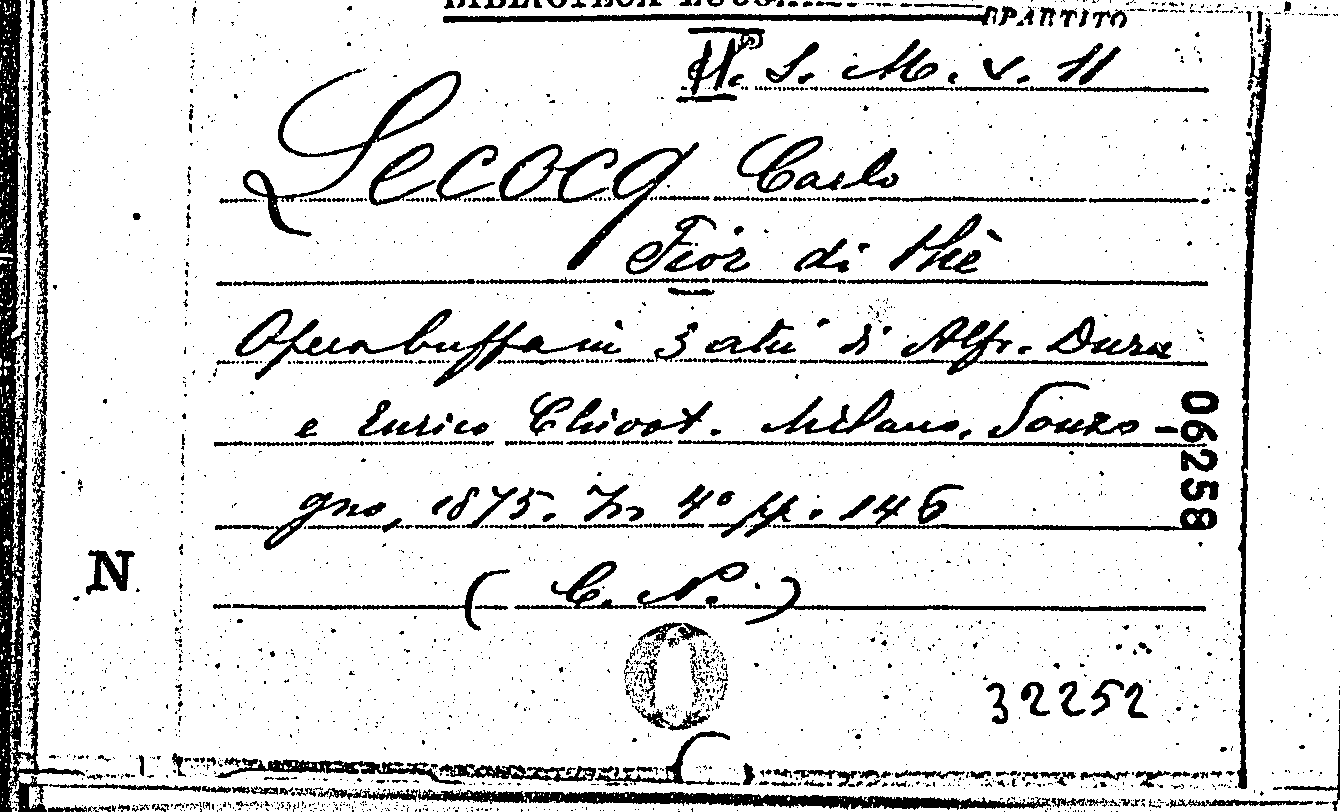 BIBLIOTECA LUCCHESI
RPARTITO
S. M. v. 11
Lecocq Carlo
Fior di thè
Opera buffa in 3 atti di Alfr. Duru
e Enrico Chivot. Milano, Sonzo-
gno, 1875. In 4° pp. 146
(C. N.)
N
06258
32252